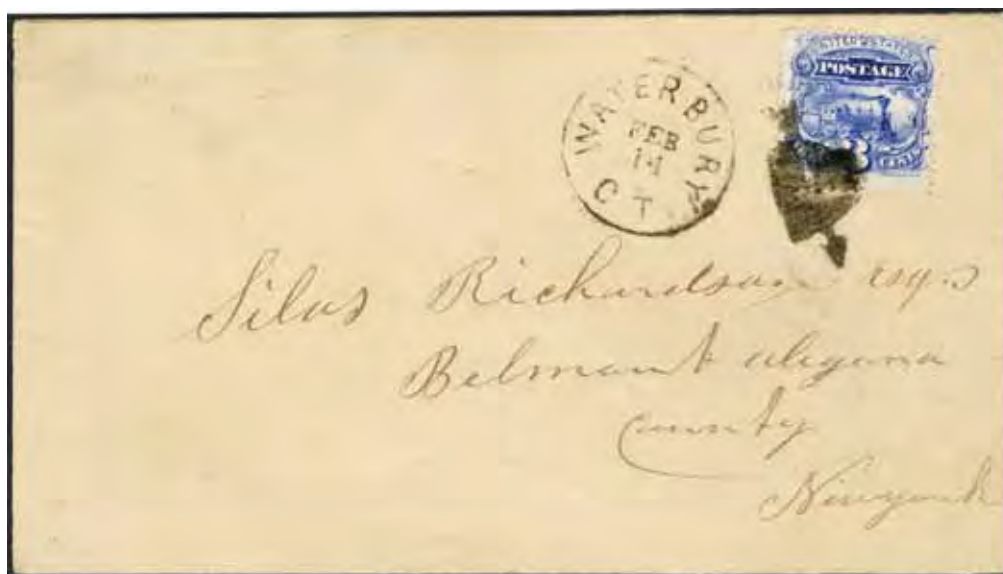 UNITED STATES
POSTAGE
3 CENTS
WATERBURY
FEB
14
CT
Silas Richardson esq.
Belmont alegana
county
Newyork